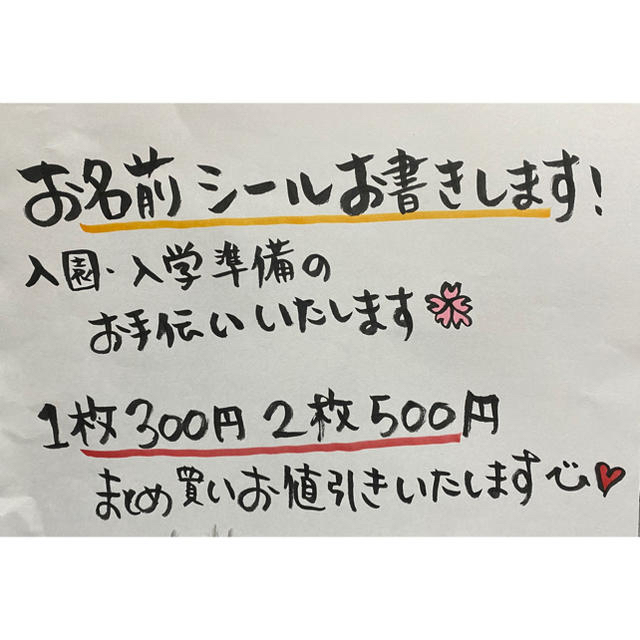 お名前シールお書きします!
入園・入学準備の
お手伝いいたします
1枚300円 2枚500円
まとめ買いお値引きいたします